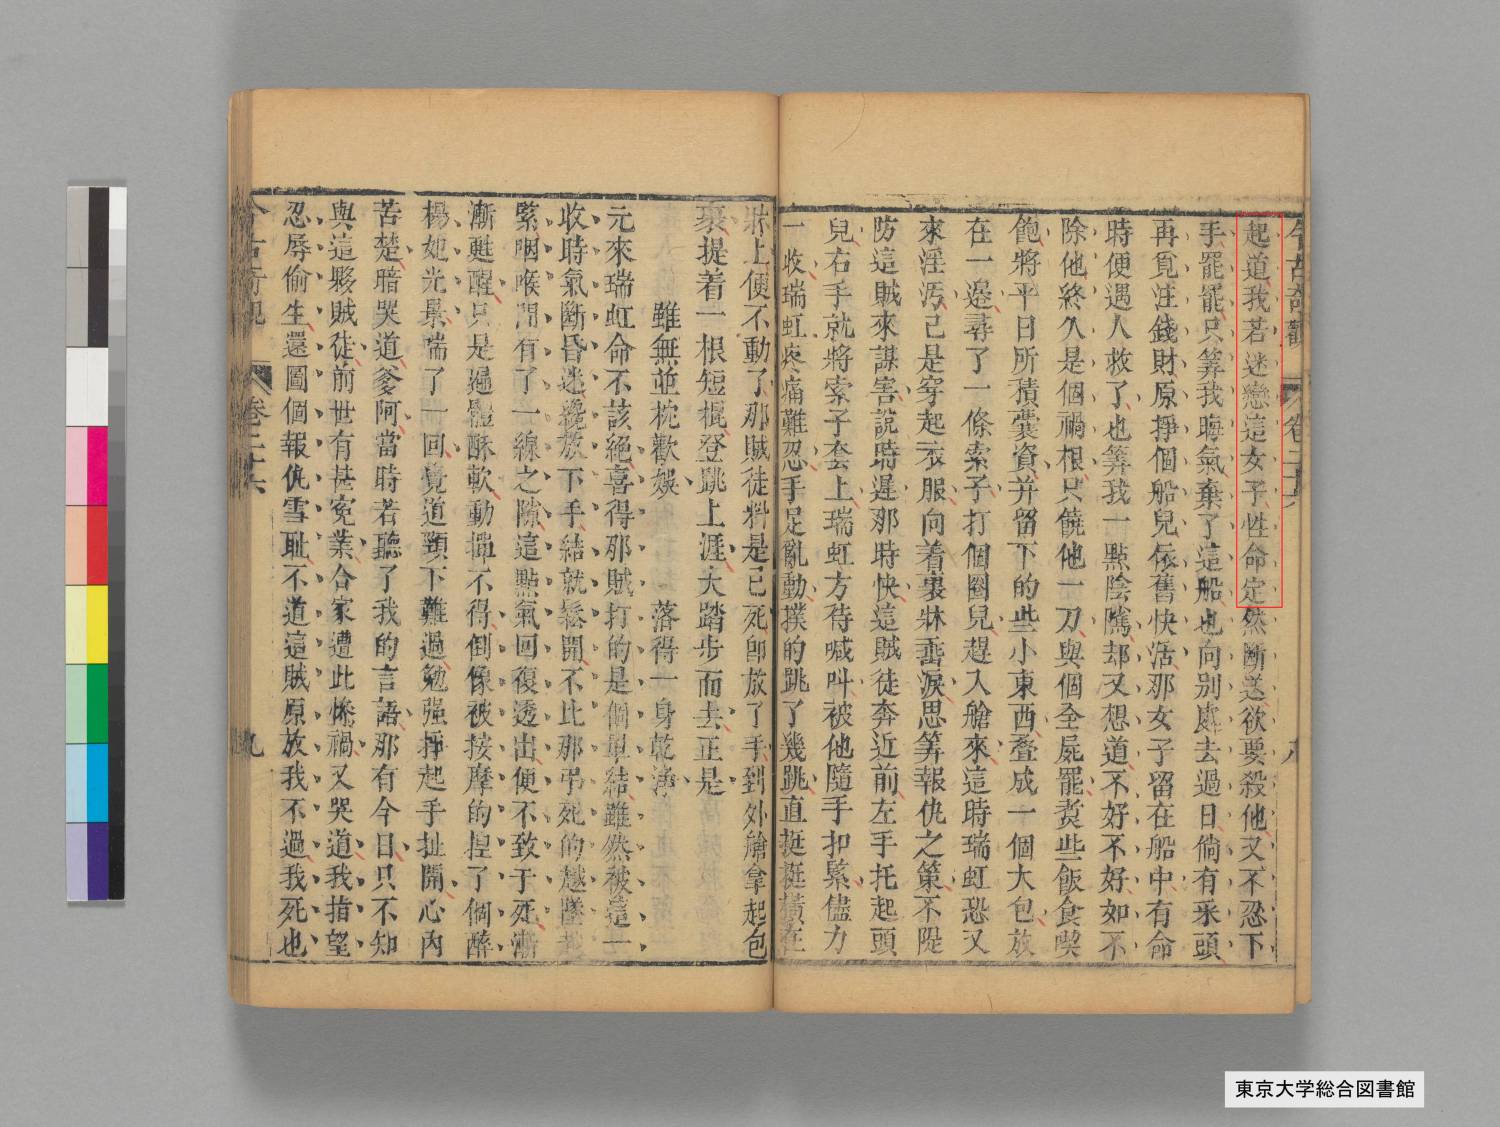 今古奇觀 卷二十六 八
起道我若迷戀這女子性命定然斷送欲要殺他又不忍下
手罷罷只筭我晦氣棄了這船也向别處去過日倘有采頭
再覓注錢財原掙個船兒依舊快活那女子留在船中有命
時便遇人救了也筭我一點陰隲却又想道不好不好如不
除他終久是個禍根只饒他一刀與個全屍罷煑些飯食喫
飽將平日所積囊資并留下的些小東西疊成一個大包放
在一邊尋了一條索子打個圈兒趕入艙來這時瑞虹恐又
來淫汚已是穿起衣服向着裏牀垂淚思筭報仇之策不隄
防這賊來謀害說時遲那時快這賊徒奔近前左手托起頭
兒右手就將索子套上瑞虹方待喊叫被他隨手扣緊儘力
一收瑞虹疼痛難忍手足亂動撲的跳了幾跳直挺挺橫在
牀上便不動了那賊徒料是已死卽放了手到外艙拿起包
裹提着一根短棍登跳上涯大踏步而去正是
雖無並枕歡娛 落得一身乾淨
元來瑞虹命不該絕喜得那賊打的是個單結雖然被這一
收時氣斷昏迷纔放下手結就鬆開不比那弔死的越墜越
緊咽喉間有了一線之隙這點氣回復透出便不致于死漸
漸甦醒只是遍體酥軟動撣不得倒像被按摩的捏了個醉
楊妃光景喘了一回覺道頸下難過勉强掙起手扯開心內
苦楚暗哭道爹阿當時若聽了我的言語那有今日只不知
與這夥賊徒前世有甚寃業合家遭此慘禍又哭道我指望
忍辱偷生還圖個報仇雪耻不道這賊原放我不過我死也
今古奇觀 卷二十六 九
東京大学総合図書館